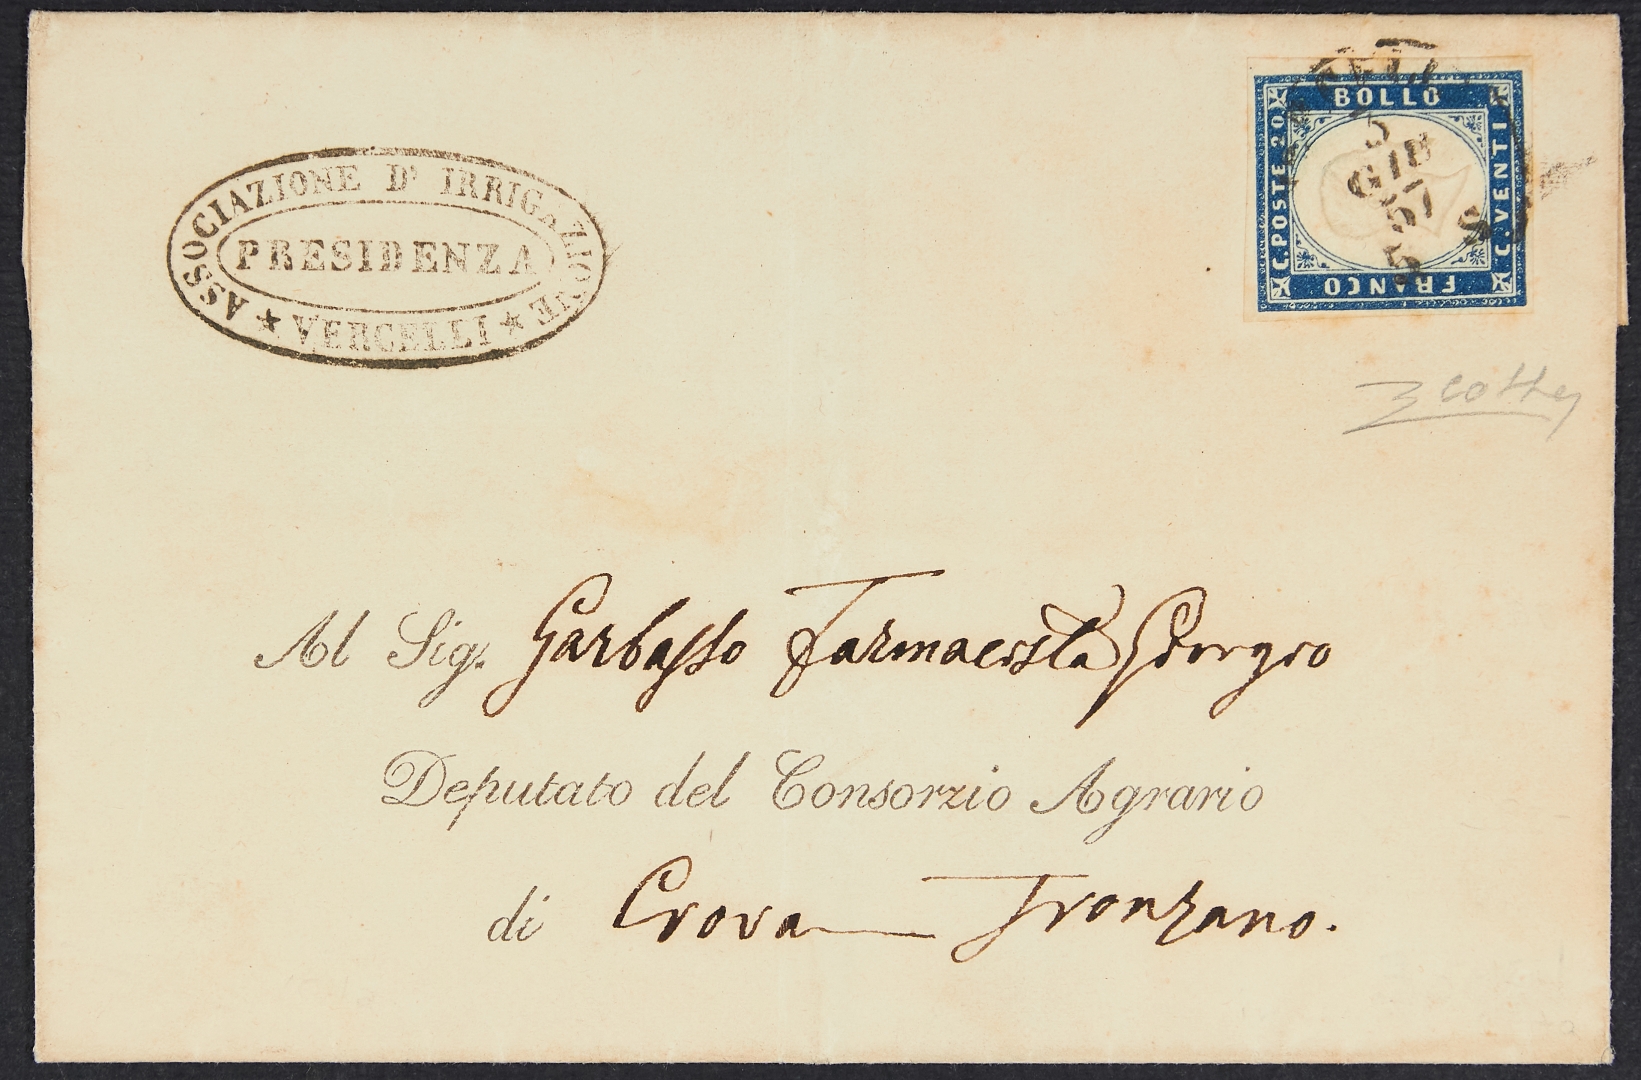 ASSOCIAZIONE D' IRRIGAZIONE
PRESIDENZA
★ VERCELLI ★
BOLLO
C. POSTE 20
C. VENTI
FRANCO
5
GIU
57
5 S
Al Sig. Garbasso Farmacista Giorgio
Deputato del Consorzio Agrario
di Crova Tronzano.